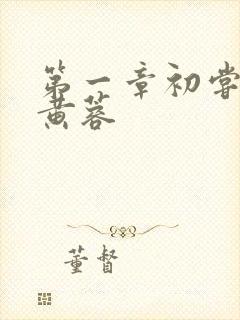 第一章初尝
黄蓉
董督